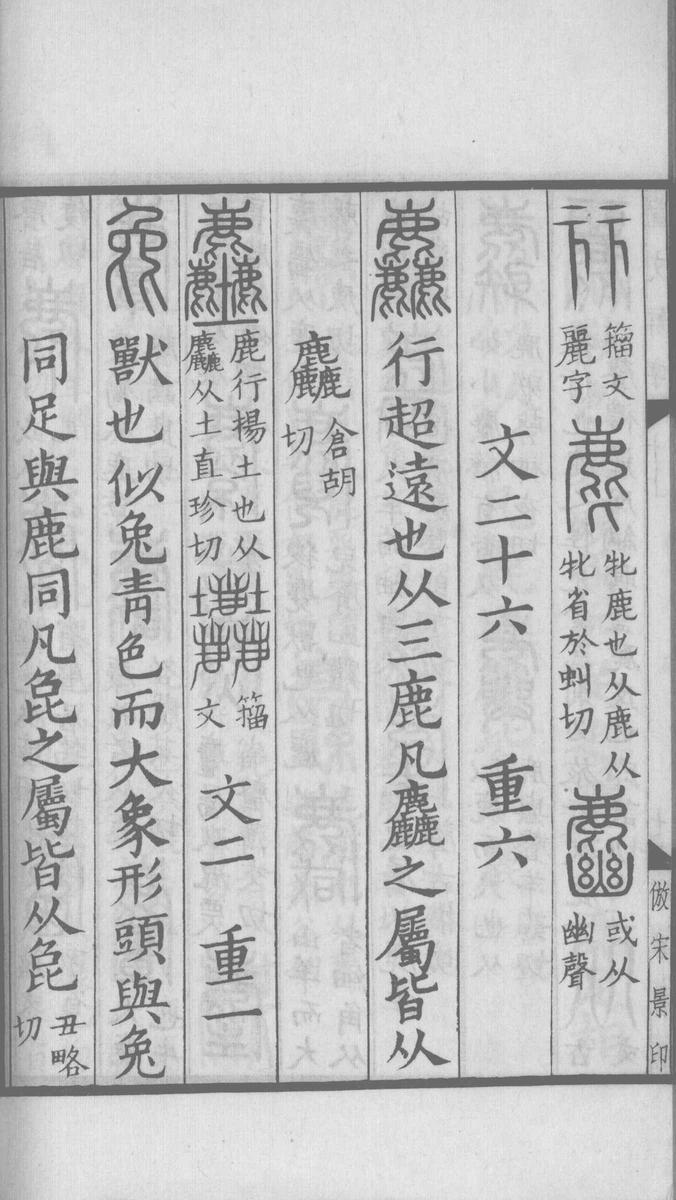 籀文
麗字
麀
牝鹿也从鹿从
牝省於虯切
或从
幽聲
文二十六 重六
麤 行超遠也从三鹿凡麤之屬皆从
麤 倉胡
切
鹿行揚土也从
麤从土直珍切
籀
文
文二 重一
㲋 獸也似兔青色而大象形頭與兔
同足與鹿同凡㲋之屬皆从㲋 丑略
切
倣宋景印